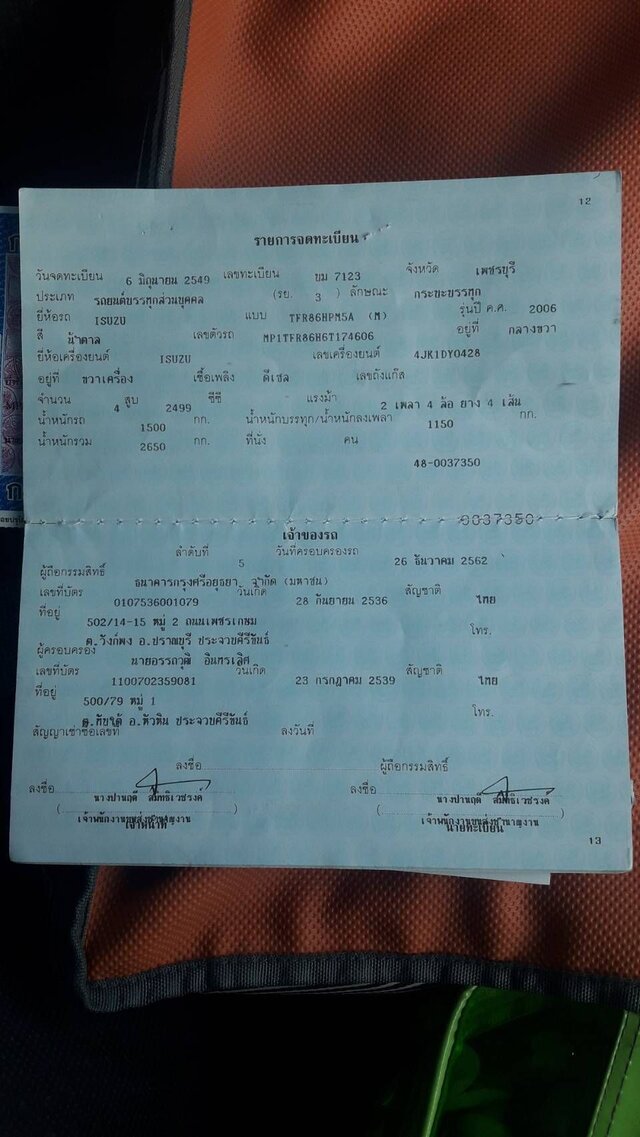 12
รายการจดทะเบียน
วันจดทะเบียน 6 มิถุนายน 2549 เลขทะเบียน ขม 7123 จังหวัด เพชรบุรี
ประเภท รถยนต์บรรทุกส่วนบุคคล (รย. 3 ) ลักษณะ กระบะบรรทุก
ยี่ห้อรถ ISUZU แบบ TFR86HPM5A (M) รุ่นปี ค.ศ. 2006
สี น้ำตาล เลขตัวรถ MP1TFR86H6T174606 อยู่ที่ กลางขวา
ยี่ห้อเครื่องยนต์ ISUZU เลขเครื่องยนต์ 4JK1DY0428
อยู่ที่ ขวาเครื่อง เชื้อเพลิง ดีเซล เลขถังแก๊ส
จำนวน 4 สูบ 2499 ซีซี แรงม้า 2 เพลา 4 ล้อ ยาง 4 เส้น
น้ำหนักรถ 1500 กก. น้ำหนักบรรทุก/น้ำหนักลงเพลา 1150 กก.
น้ำหนักรวม 2650 กก. ที่นั่ง คน
48-0037350
0037350
เจ้าของรถ
ลำดับที่ 5 วันที่ครอบครองรถ 26 ธันวาคม 2562
ผู้ถือกรรมสิทธิ์ ธนาคารกรุงศรีอยุธยา จำกัด (มหาชน)
เลขที่บัตร 0107536001079 วันเกิด 28 กันยายน 2536 สัญชาติ ไทย
ที่อยู่ 502/14-15 หมู่ 2 ถนนเพชรเกษม
ต.วังก์พง อ.ปราณบุรี ประจวบคีรีขันธ์ โทร.
ผู้ครอบครอง นายอรรถวุฒิ อินทรเลิศ
เลขที่บัตร 1100702359081 วันเกิด 23 กรกฎาคม 2539 สัญชาติ ไทย
ที่อยู่ 500/79 หมู่ 1
ต.ทับใต้ อ.หัวหิน ประจวบคีรีขันธ์ โทร.
สัญญาเช่าซื้อเลขที่ ลงวันที่
ลงชื่อ ผู้ถือกรรมสิทธิ์
ลงชื่อ ลงชื่อ
นางปานฤดี สมิทธิเวชรงค์ นางปานฤดี สมิทธิเวชรงค์
เจ้าพนักงานขนส่งชำนาญงาน เจ้าพนักงานขนส่งชำนาญงาน
เจ้าหน้าที่ นายทะเบียน
13